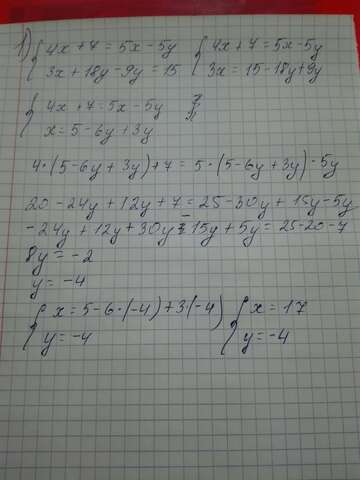 1) { 4x + 7 = 5x - 5y { 4x + 7 = 5x - 5y
3x + 18y - 9y = 15 3x = 15 - 18y + 9y
{ 4x + 7 = 5x - 5y
x = 5 - 6y + 3y
4·(5-6y + 3y) + 7 = 5·(5-6y + 3y) - 5y
20 - 24y + 12y + 7 = 25 - 30y + 15y - 5y
- 24y + 12y + 30y - 15y + 5y = 25-20-7
8y = -2
y = -4
{ x = 5-6·(-4) + 3·(-4) { x = 17
y = -4 y = -4